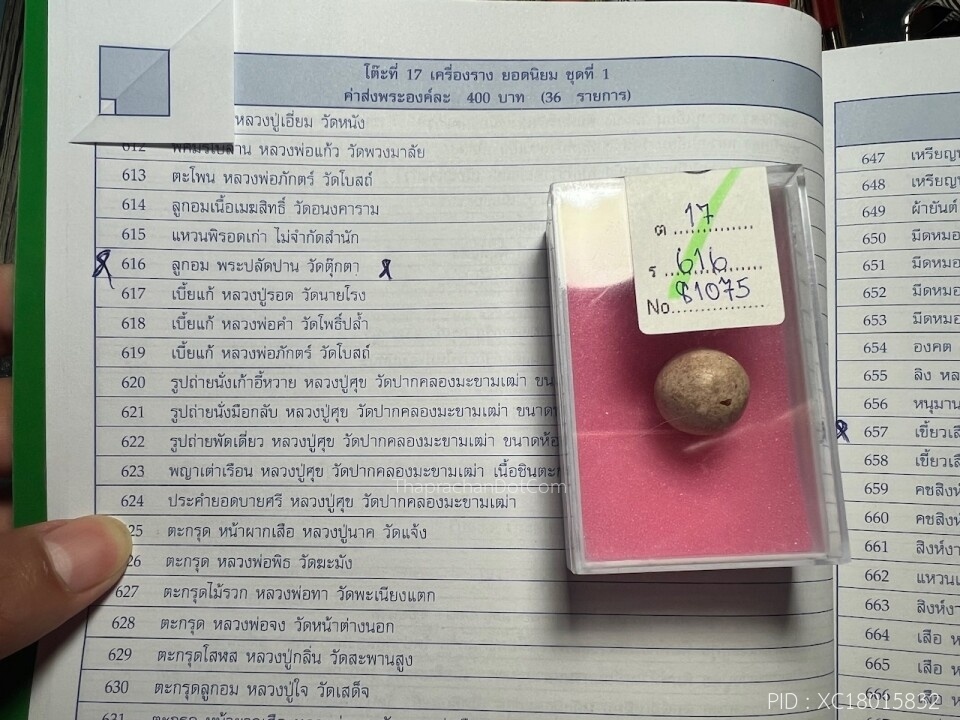 โต๊ะที่ 17 เครื่องราง ยอดนิยม ชุดที่ 1
ค่าส่งพระองค์ละ 400 บาท (36 รายการ)
หลวงปู่เอี่ยม วัดหนัง
612 หลวงพ่อแก้ว วัดพวงมาลัย
613 ตะโพน หลวงพ่อภักตร์ วัดโบสถ์
614 ลูกอมเนื้อเมฆสิทธิ์ วัดอนงคาราม
615 แหวนพิรอดเก่า ไม่จำกัดสำนัก
616 ลูกอม พระปลัดปาน วัดตุ๊กตา
617 เบี้ยแก้ หลวงปู่รอด วัดนายโรง
618 เบี้ยแก้ หลวงพ่อคำ วัดโพธิ์ปล้ำ
619 เบี้ยแก้ หลวงพ่อภักตร์ วัดโบสถ์
620 รูปถ่ายนั่งเก้าอี้หวาย หลวงปู่ศุข วัดปากคลองมะขามเฒ่า ขน
621 รูปถ่ายนั่งมือกลับ หลวงปู่ศุข วัดปากคลองมะขามเฒ่า ขนาด
622 รูปถ่ายพัดเดี่ยว หลวงปู่ศุข วัดปากคลองมะขามเฒ่า ขนาดห้อ
623 พญาเต่าเรือน หลวงปู่ศุข วัดปากคลองมะขามเฒ่า เนื้อชินตะ
624 ประคำยอดบายศรี หลวงปู่ศุข วัดปากคลองมะขามเฒ่า
25 ตะกรุด หน้าผากเสือ หลวงปู่นาค วัดแจ้ง
26 ตะกรุด หลวงพ่อพิธ วัดฆะมัง
627 ตะกรุดไม้รวก หลวงพ่อทา วัดพะเนียงแตก
628 ตะกรุด หลวงพ่อจง วัดหน้าต่างนอก
629 ตะกรุดโสฬส หลวงปู่กลิ่น วัดสะพานสูง
630 ตะกรุดลูกอม หลวงปู่ใจ วัดเสด็จ
631 ตะกรุด
ต 17
ร 616
No 81075
647 เหรียญ
648 เหรียญ
649 ผ้ายันต์
650 มีดหมอ
651 มีดหมอ
652 มีดหมอ
653 มีดหมอ
654 องคต
655 ลิง หล
656 หนุมาน
657 เขี้ยวเสื
658 เขี้ยวเสื
659 คชสิงห์
660 คชสิงห์
661 สิงห์งา
662 แหวน
663 สิงห์งา
664 เสือ ห
665 เสือ ห
666 เสือ
ThaprachanDotCom
PID : XC18015832